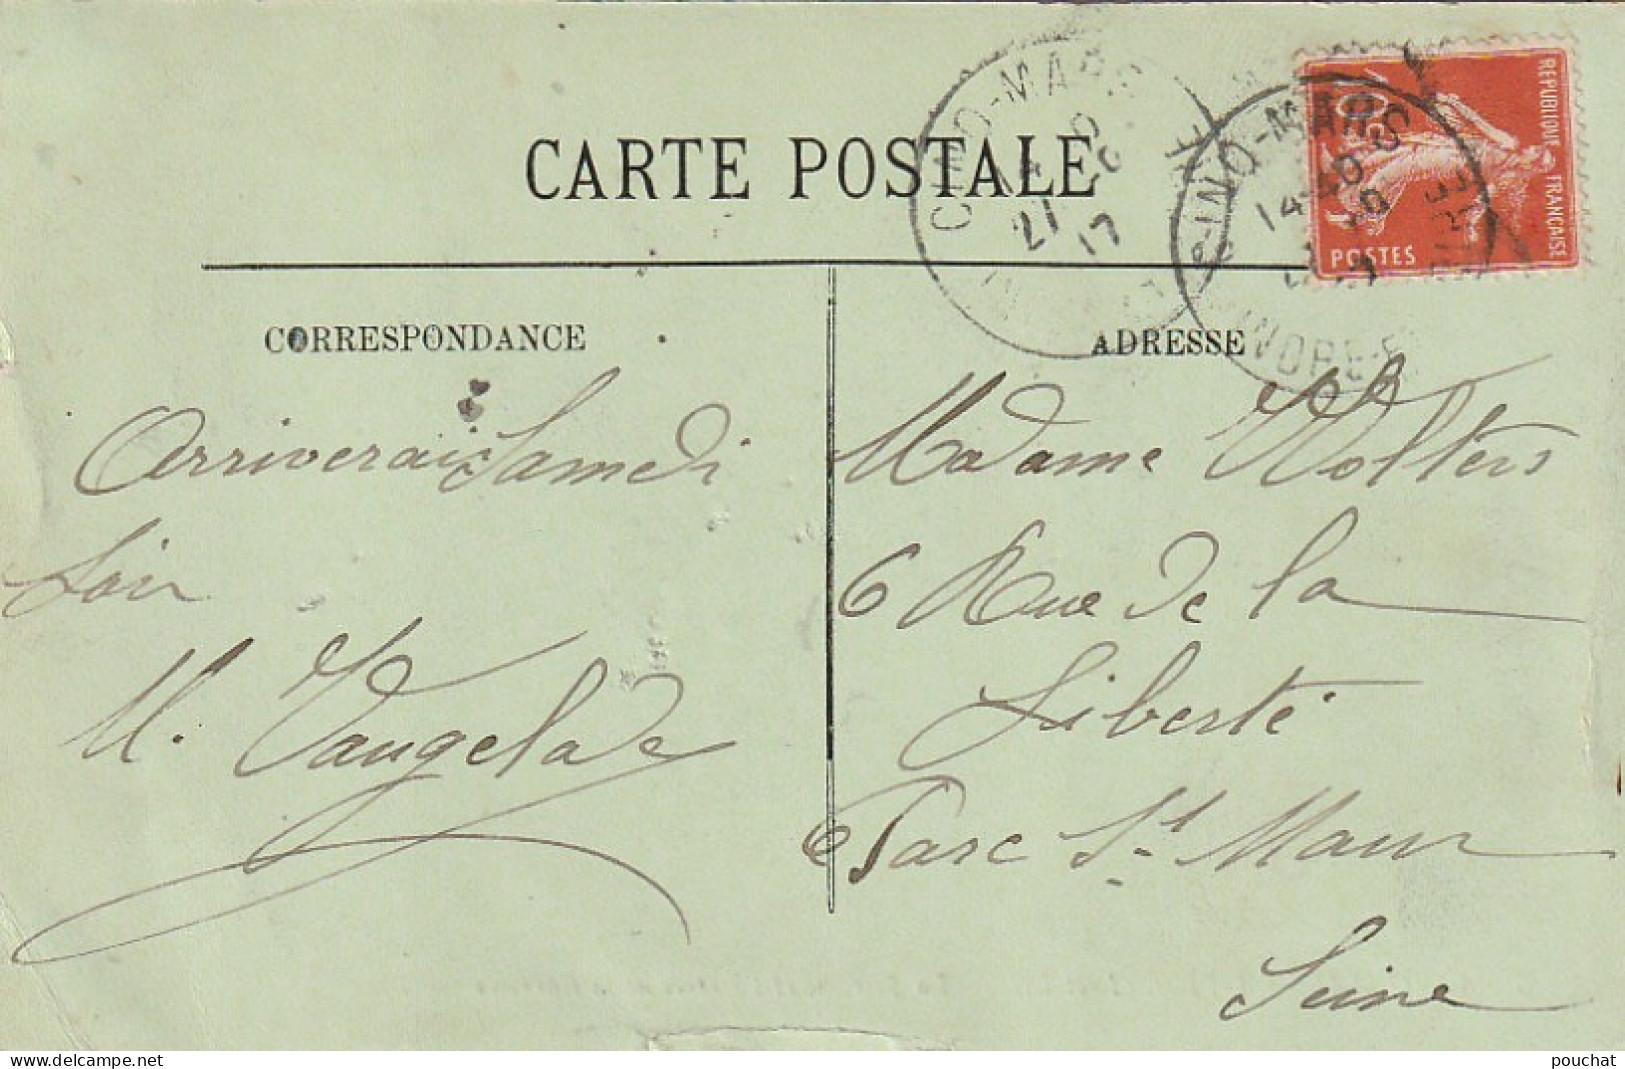 CARTE POSTALE
REPUBLIQUE FRANÇAISE
POSTES
CINQ-MARS
21
17
CINQ-MARS
14 40
CORRESPONDANCE
ADRESSE
Arriverai Samedi
Soir
M. Vaugelade
Madame Wolters
6 Rue de la
Liberté
Parc St Maur
Seine
pouchat